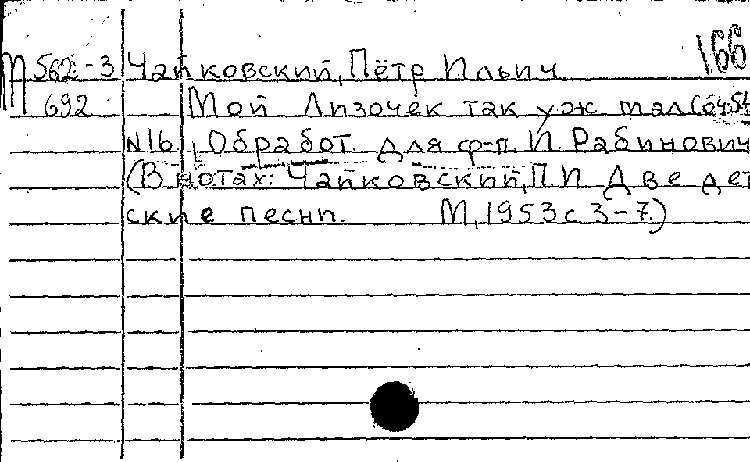 166
М 562-3 Чайковский, Пётр Ильич.
692 Мой Лизочек так уж мал (Оч.54
N16). Обработ. для ф-п. И. Рабинович
(В нотах: Чайковский, П.И. Две дет
ские песни. М, 1953 с. 3-7.)